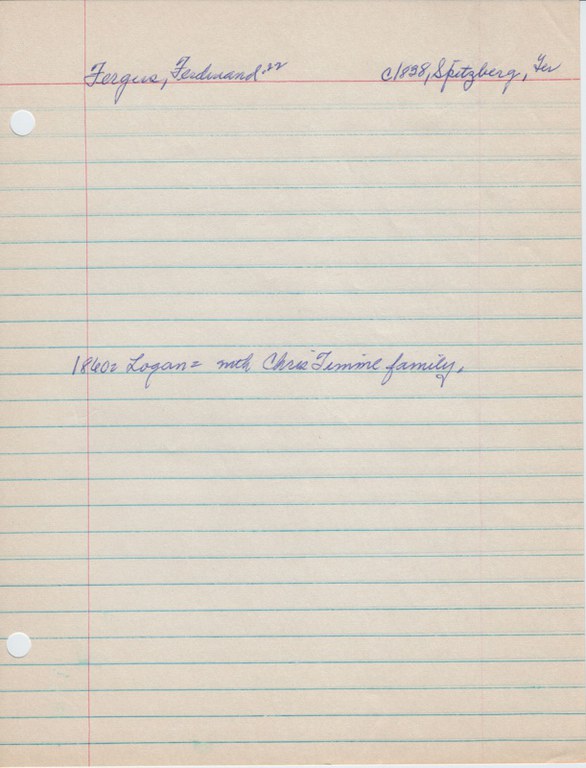 Fergus, Ferdinand 22
c1838, Spitzberg, Ger
1860= Logan= with Chris Timme family.